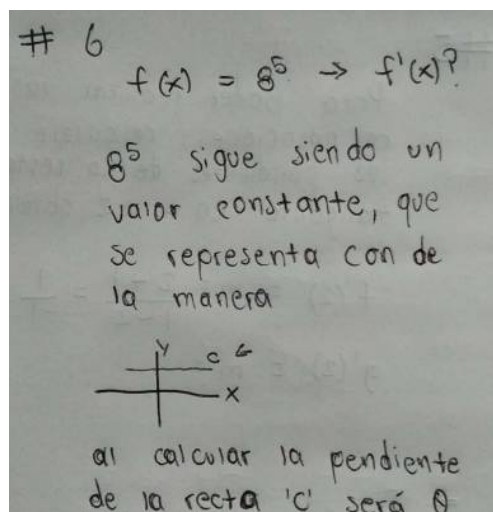 # 6
f(x) = 8⁵ → f'(x)?
8⁵ sigue siendo un
valor constante, que
se representa con de
la manera
Y
C
X
al calcular la pendiente
de la recta 'c' será 0